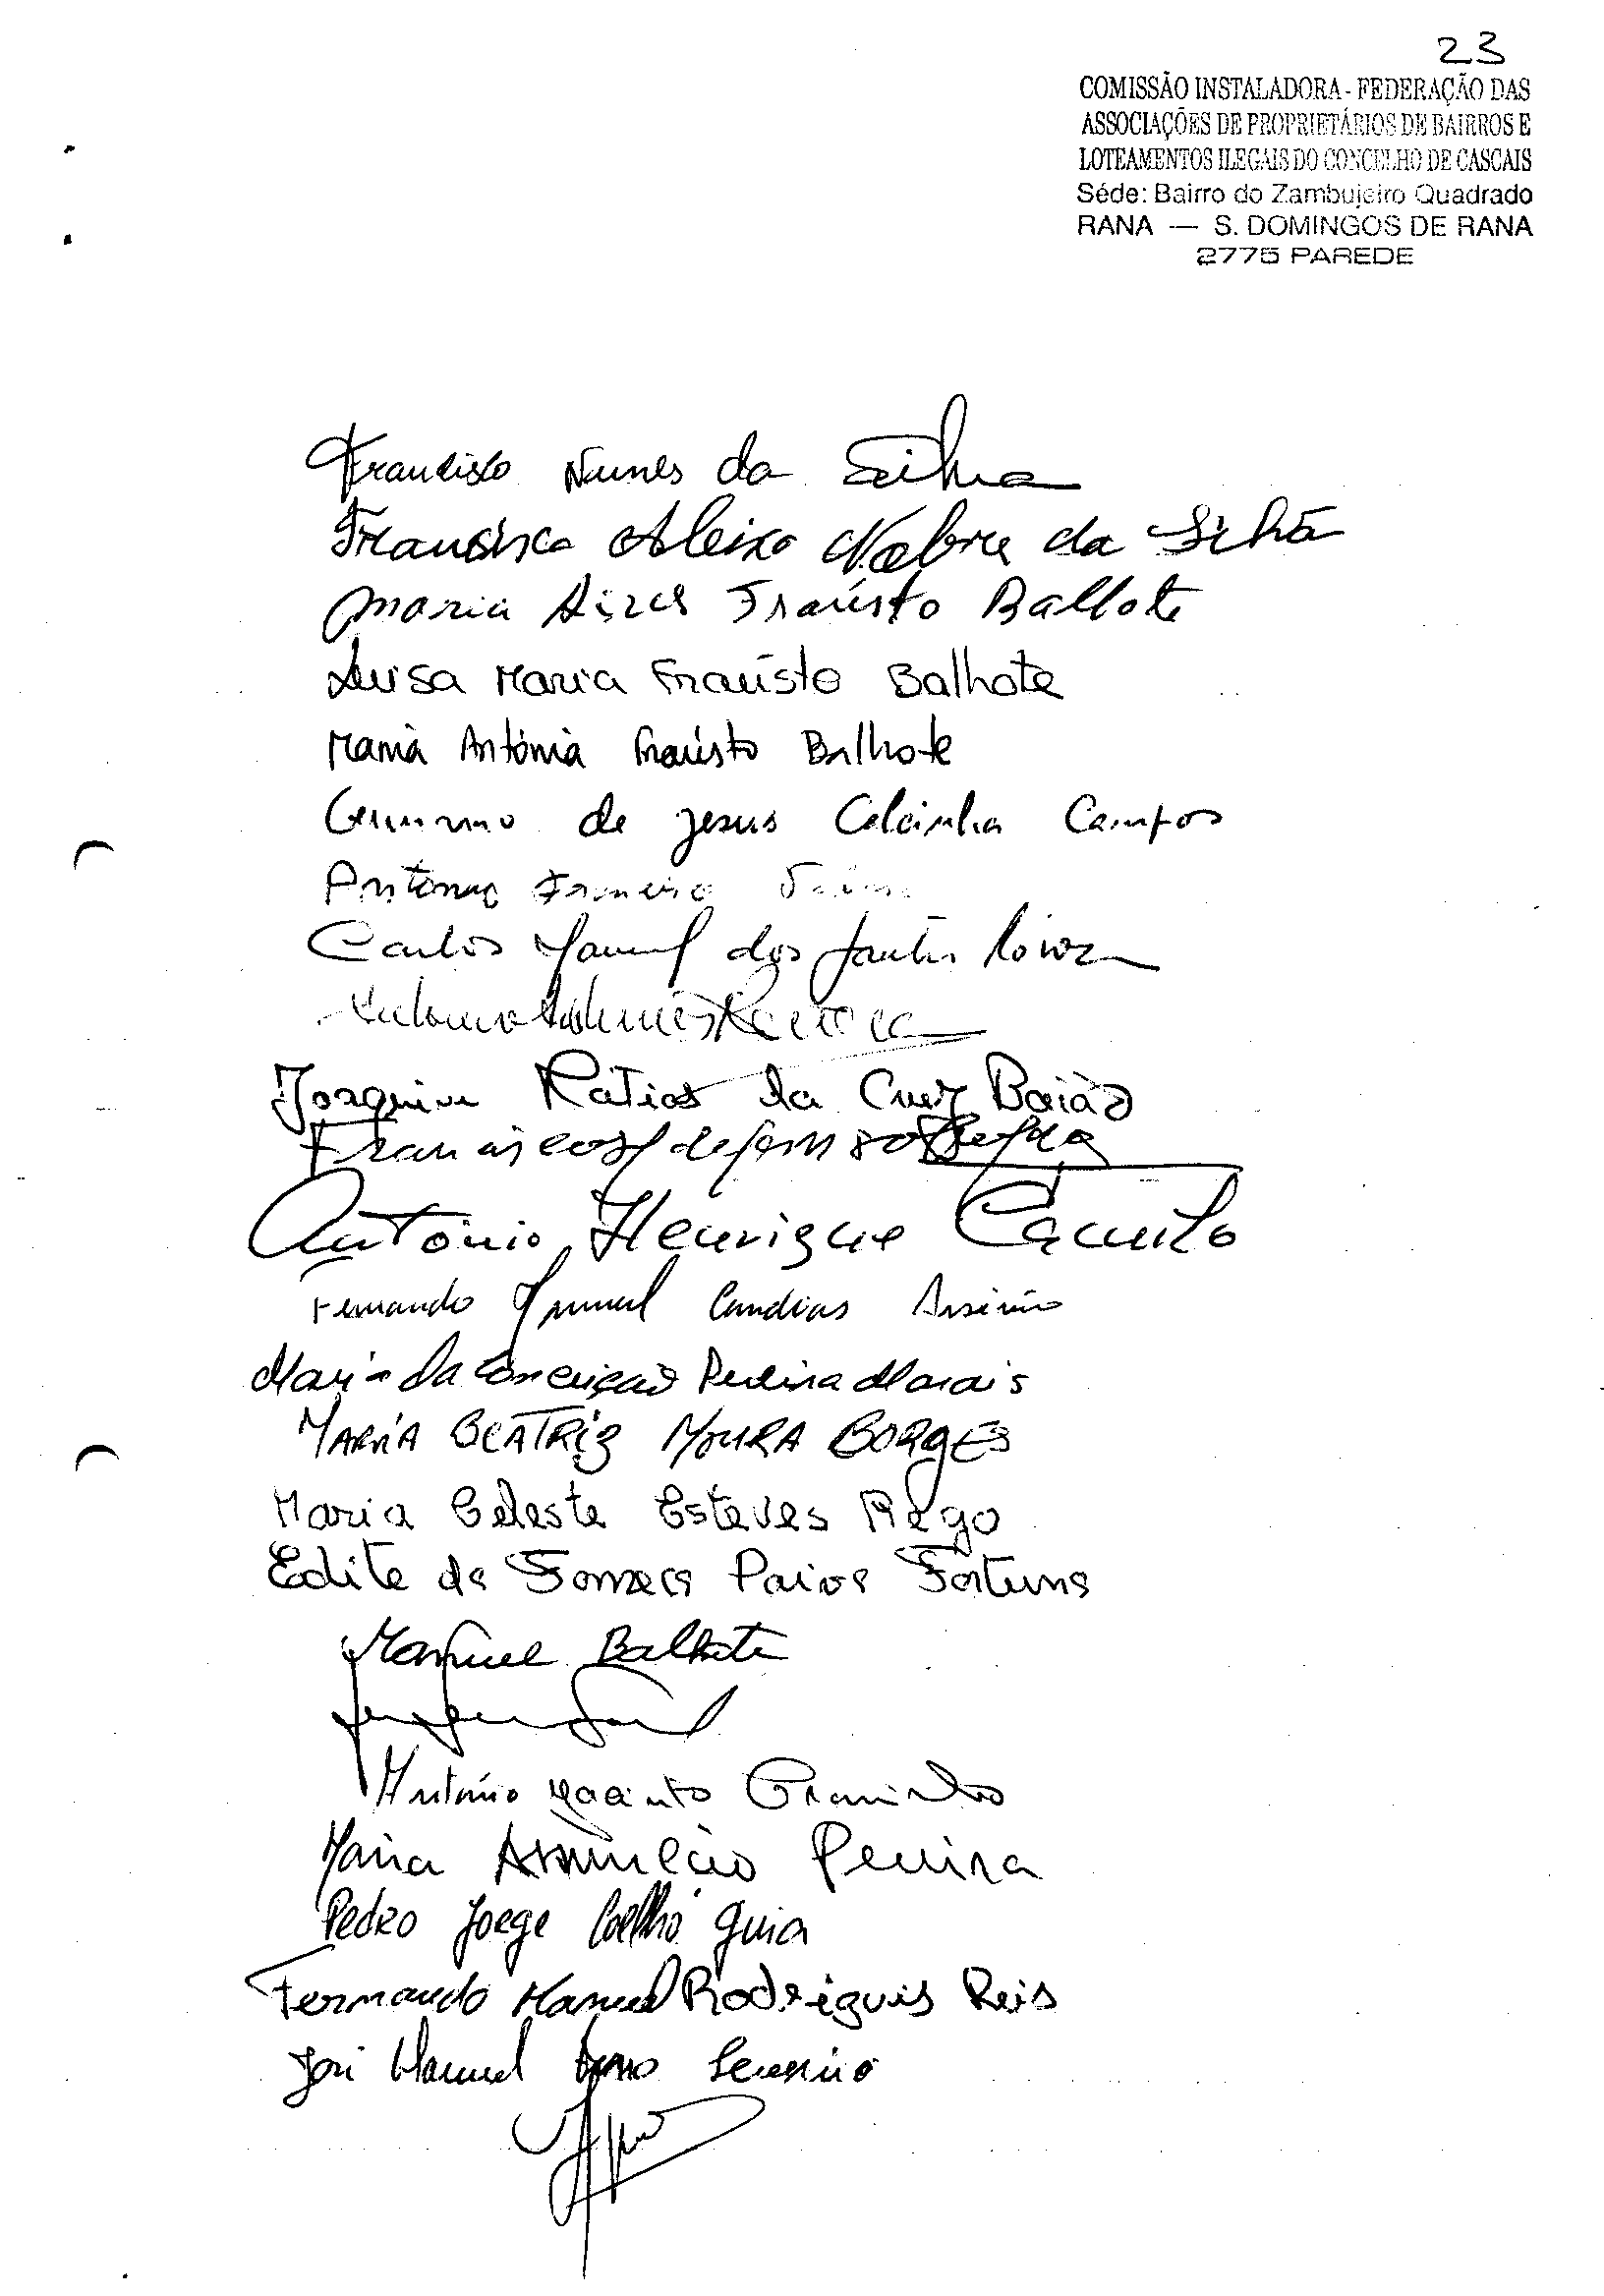 23
COMISSÃO INSTALADORA - FEDERAÇÃO DAS
ASSOCIAÇÕES DE PROPRIETÁRIOS DE BAIRROS E
LOTEAMENTOS ILEGAIS DO CONCELHO DE CASCAIS
Séde: Bairro do Zambujeiro Quadrado
RANA — S. DOMINGOS DE RANA
2775 PAREDE
Francisco Nunes da Silva
Francisca Aleixo Nobre da Silva
Maria Aires Fraústo Ballote
Luisa Maria Fraústo Balhote
Maria Antónia Fraústo Balhote
de Jesus Campos
António
Carlos Manuel dos Santos
Joaquim Matias da Cruz Baião
Francisco
António Henrique Camilo
Fernando Manuel Candias
Maria da Conceição Pereira Morais
MARIA BEATRIZ MOURA BORGES
Maria Celeste Esteves Rego
Edite da Fonseca Paiva Fortuna
Manuel Balhote
António Jacinto Graninho
Maria Assunção Pereira
Pedro Jorge Coelho Guia
Fernando Manuel Rodriguis Reis
José Manuel